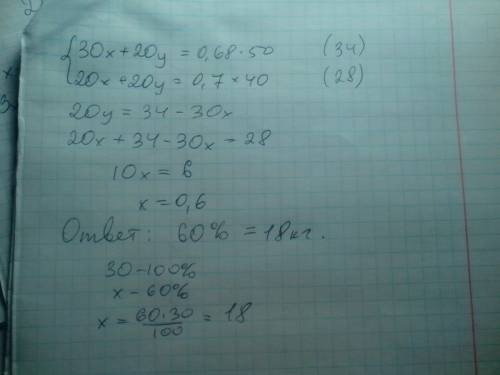 2)
{30x+20y = 0,68·50 (34)
20x+20y = 0,7×40 (28)
20y = 34-30x
20x + 34-30x = 28
10x = 6
x = 0,6
Ответ: 60% = 18кг.
30-100%
x-60%
x = 60·30/100 = 18